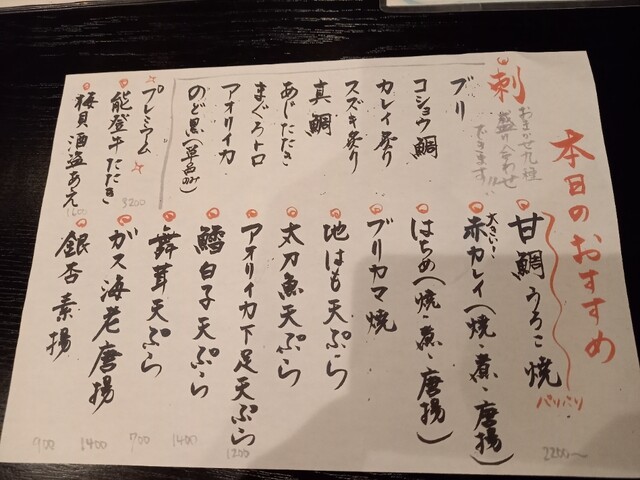 本日のおすすめ
刺
おまかせ九種
盛り合わせ
できます!!
ブリ
コショウ鯛
カレイ炙り
スズキ炙り
真鯛
あじたたき
まぐろトロ
アオリイカ
のど黒(単品のみ)
プレミアム
能登牛たたき
3200
梅貝酒盗あえ
1600
甘鯛うろこ焼
パリパリ
2200〜
大きい!
赤カレイ(焼・煮・唐揚)
はちめ(焼・煮・唐揚)
ブリカマ焼
地はも天ぷら
太刀魚天ぷら
アオリイカ下足天ぷら
1200
鱈白子天ぷら
1400
舞茸天ぷら
700
ガス海老唐揚
1400
銀杏素揚
900